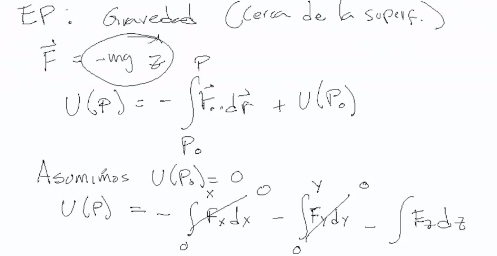 EP: Gravedad (Cerca de la superf.)
F⃗ = -mg ẑ
U(P) = - ∫_{P₀}^{P} F⃗·dr⃗ + U(P₀)
Asumimos U(P₀) = 0
U(P) = - ∫_0^x Fx dx 0 - ∫_0^y Fy dy 0 - ∫ Fz dz